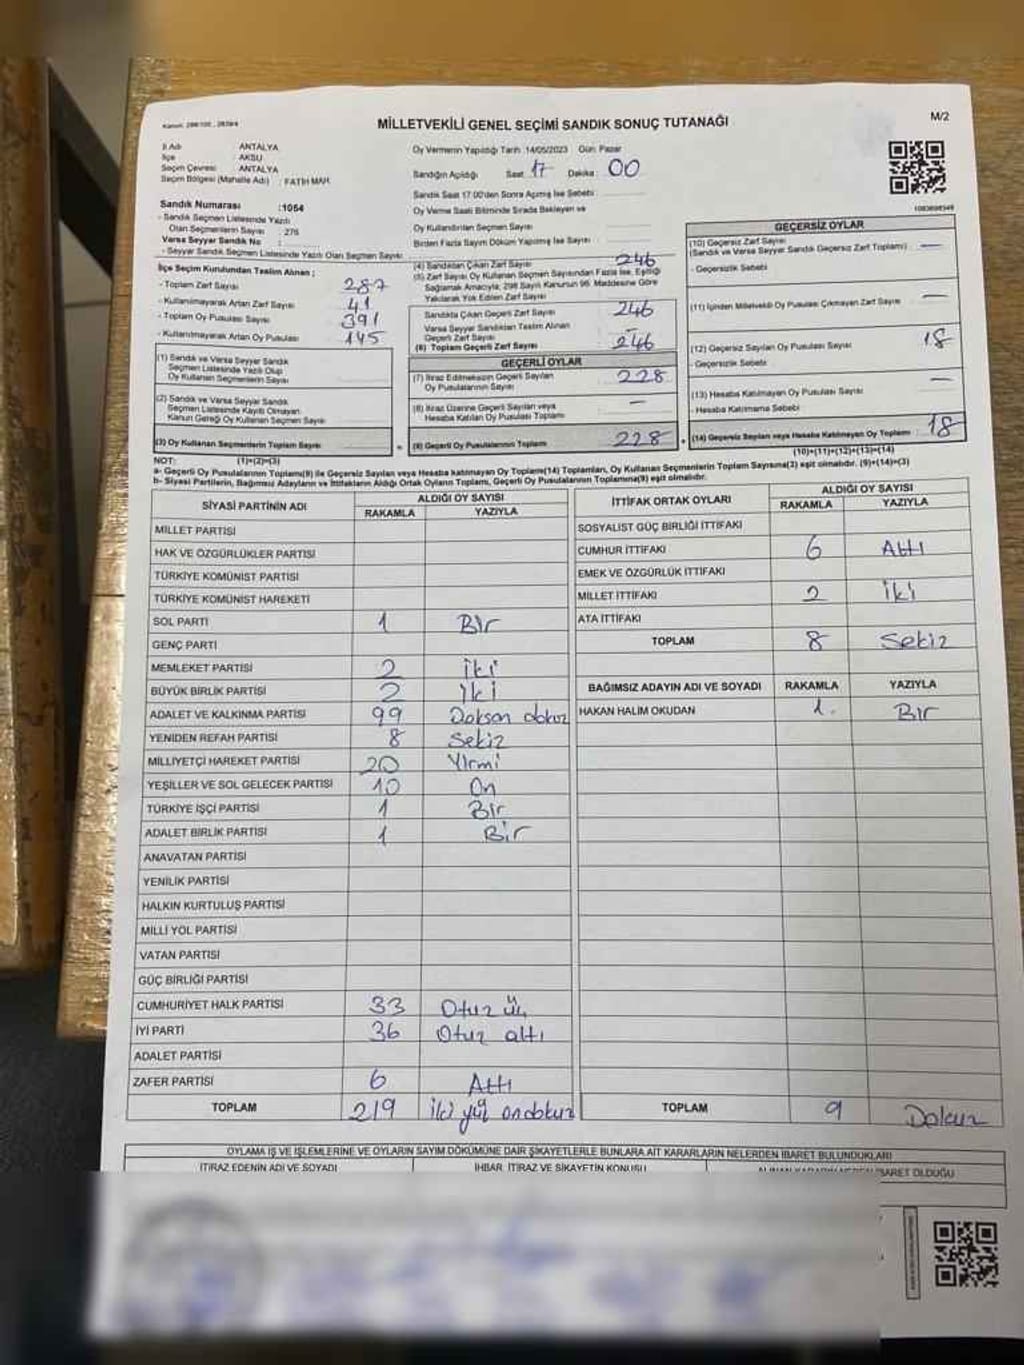 MİLLETVEKİLİ GENEL SEÇİMİ SANDIK SONUÇ TUTANAĞI
M/2
İl Adı ANTALYA
İlçe AKSU
Seçim Çevresi ANTALYA
Seçim Bölgesi (Mahalle Adı) : FATİH MAH.
Sandık Numarası :1054
- Sandık Seçmen Listesinde Yazılı
Olan Seçmenlerin Sayısı : 276
Varsa Seyyar Sandık No :
- Seyyar Sandık Seçmen Listesinde Yazılı Olan Seçmen Sayısı
Oy Vermenin Yapıldığı Tarih :14/05/2023 Gün: Pazar
Sandığın Açıldığı Saat 17 Dakika 00
Sandık Saat 17:00'den Sonra Açılmış İse Sebebi
Oy Verme Saati Bitiminde Sırada Bekleyen ve
Oy Kullandırılan Seçmen Sayısı
Birden Fazla Sayım Döküm Yapılmış İse Sayısı
İlçe Seçim Kurulundan Teslim Alınan ;
- Toplam Zarf Sayısı 287
- Kullanılmayarak Artan Zarf Sayısı 41
- Toplam Oy Pusulası Sayısı 391
- Kullanılmayarak Artan Oy Pusulası 145
(1) Sandık ve Varsa Seyyar Sandık
Seçmen Listesinde Yazılı Olup
Oy Kullanan Seçmenlerin Sayısı
(2) Sandık ve Varsa Seyyar Sandık
Seçmen Listesinde Kayıtlı Olmayan
Kanun Gereği Oy Kullanan Seçmen Sayısı
(3) Oy Kullanan Seçmenlerin Toplam Sayısı
(1)+(2)=(3)
(4) Sandıktan Çıkan Zarf Sayısı 246
(5) Zarf Sayısı Oy Kullanan Seçmen Sayısından Fazla İse, Eşitliği
Sağlamak Amacıyla, 298 Sayılı Kanunun 98. Maddesine Göre
Yakılarak Yok Edilen Zarf Sayısı
Sandıkta Çıkan Geçerli Zarf Sayısı 246
Varsa Seyyar Sandıktan Teslim Alınan
Geçerli Zarf Sayısı -
(6) Toplam Geçerli Zarf Sayısı 246
GEÇERLİ OYLAR
(7) İtiraz Edilmeksizin Geçerli Sayılan
Oy Pusulalarının Sayısı 228
(8) İtiraz Üzerine Geçerli Sayılan veya
Hesaba Katılan Oy Pusulası Toplamı -
(9) Geçerli Oy Pusulalarının Toplamı 228
GEÇERSİZ OYLAR
(10) Geçersiz Zarf Sayısı
(Sandık ve Varsa Seyyar Sandık Geçersiz Zarf Toplamı) -
- Geçersizlik Sebebi
(11) İçinden Milletvekili Oy Pusulası Çıkmayan Zarf Sayısı -
(12) Geçersiz Sayılan Oy Pusulası Sayısı 18
- Geçersizlik Sebebi
(13) Hesaba Katılmayan Oy Pusulası Sayısı -
- Hesaba Katılmama Sebebi
(14) Geçersiz Sayılan veya Hesaba Katılmayan Oy Toplamı 18
(10)+(11)+(12)+(13)=(14)
NOT:
a- Geçerli Oy Pusulalarının Toplamı(9) ile Geçersiz Sayılan veya Hesaba katılmayan Oy Toplamı(14) Toplamları, Oy Kullanan Seçmenlerin Toplam Sayısına(3) eşit olmalıdır. (9)+(14)=(3)
b- Siyasi Partilerin, Bağımsız Adayların ve İttifakların Aldığı Ortak Oyların Toplamı, Geçerli Oy Pusulalarının Toplamına(9) eşit olmalıdır.
SİYASİ PARTİNİN ADI ALDIĞI OY SAYISI
RAKAMLA YAZIYLA
MİLLET PARTİSİ
HAK VE ÖZGÜRLÜKLER PARTİSİ
TÜRKİYE KOMÜNİST PARTİSİ
TÜRKİYE KOMÜNİST HAREKETİ
SOL PARTİ 1 Bir
GENÇ PARTİ
MEMLEKET PARTİSİ 2 iki
BÜYÜK BİRLİK PARTİSİ 2 iki
ADALET VE KALKINMA PARTİSİ 99 Doksan dokuz
YENİDEN REFAH PARTİSİ 8 Sekiz
MİLLİYETÇİ HAREKET PARTİSİ 20 Yirmi
YEŞİLLER VE SOL GELECEK PARTİSİ 10 On
TÜRKİYE İŞÇİ PARTİSİ 1 Bir
ADALET BİRLİK PARTİSİ 1 Bir
ANAVATAN PARTİSİ
YENİLİK PARTİSİ
HALKIN KURTULUŞ PARTİSİ
MİLLİ YOL PARTİSİ
VATAN PARTİSİ
GÜÇ BİRLİĞİ PARTİSİ
CUMHURİYET HALK PARTİSİ 33 Otuz üç
İYİ PARTİ 36 Otuz altı
ADALET PARTİSİ
ZAFER PARTİSİ 6 Altı
TOPLAM 219 iki yüz ondokuz
İTTİFAK ORTAK OYLARI ALDIĞI OY SAYISI
RAKAMLA YAZIYLA
SOSYALİST GÜÇ BİRLİĞİ İTTİFAKI
CUMHUR İTTİFAKI 6 Altı
EMEK VE ÖZGÜRLÜK İTTİFAKI
MİLLET İTTİFAKI 2 iki
ATA İTTİFAKI
TOPLAM 8 Sekiz
BAĞIMSIZ ADAYIN ADI VE SOYADI RAKAMLA YAZIYLA
HAKAN HALİM OKUDAN 1. Bir
TOPLAM 9 Dokuz
OYLAMA İŞ VE İŞLEMLERİNE VE OYLARIN SAYIM DÖKÜMÜNE DAİR ŞİKAYETLERLE BUNLARA AİT KARARLARIN NELERDEN İBARET BULUNDUKLARI
İTİRAZ EDENİN ADI VE SOYADI
İHBAR, İTİRAZ VE ŞİKAYETİN KONUSU
İBARET OLDUĞU